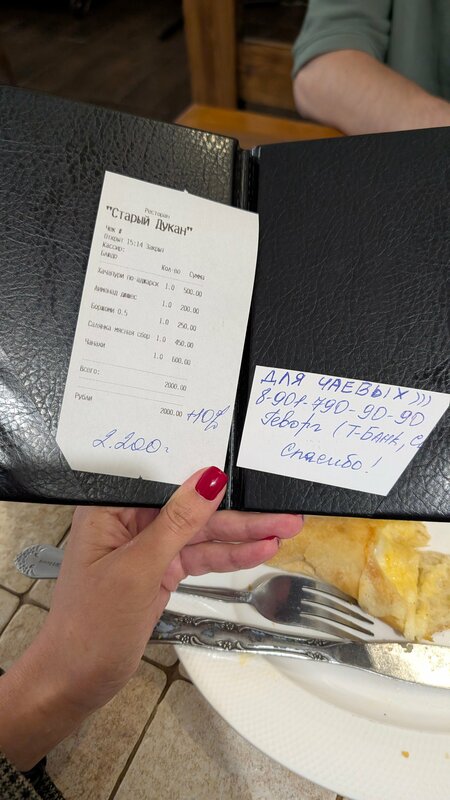 Ресторан
"Старый Дукан"
Чек #
Открыт 15:14 Закрыт
Кассир:
Блюдо Кол-во Сумма
Хачапури по-аджарск 1.0 500.00
Лимонад дюшес 1.0 200.00
Боржоми 0.5 1.0 250.00
Салянка мясная сбор 1.0 450.00
Чанахи 1.0 600.00
Всего: 2000.00
Рубли 2000.00 +10%
2.200=
ДЛЯ ЧАЕВЫХ)))
8-901-790-90-90
Геворг (Т-Банк, С
Спасибо!